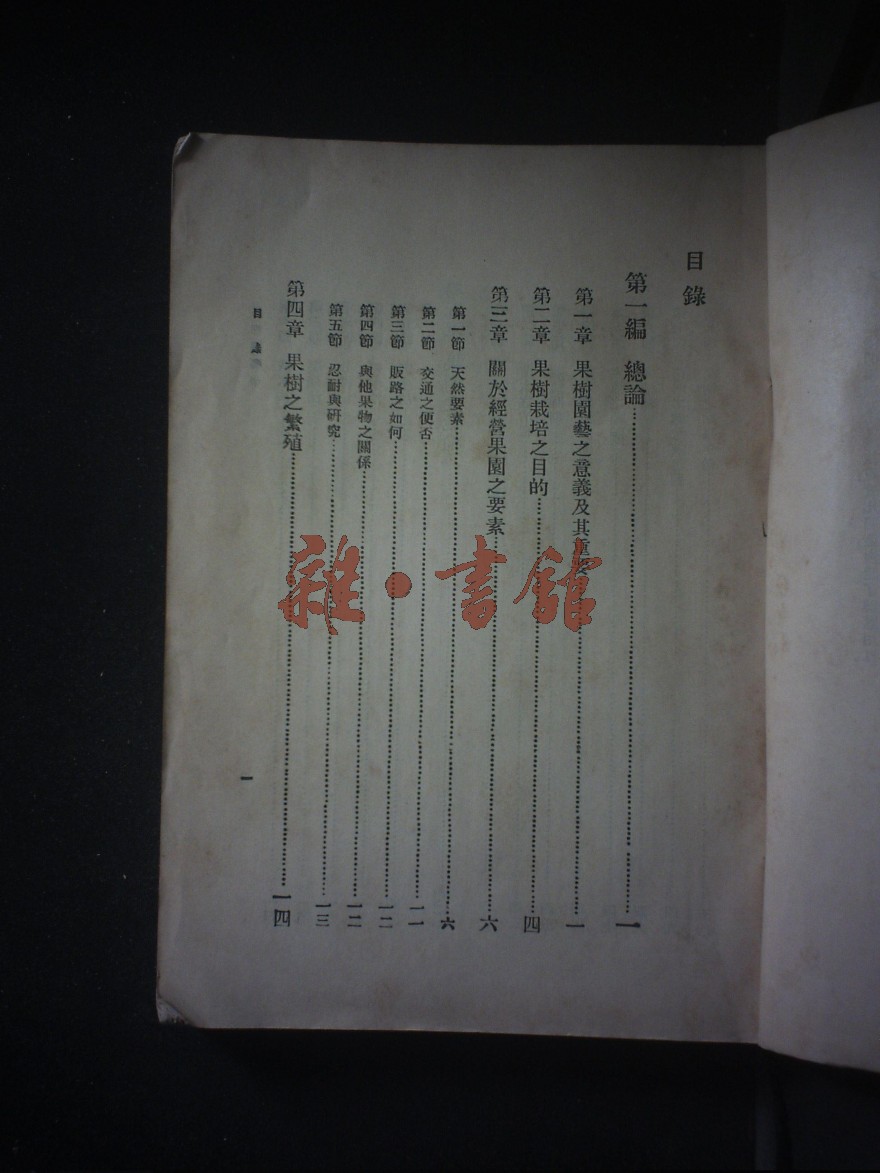 目錄
第一編 總論……一
第一章 果樹園藝之意義及其重要……一
第二章 果樹栽培之目的……四
第三章 關於經營果園之要素……六
第一節 天然要素……六
第二節 交通之便否……一一
第三節 販路之如何……一二
第四節 與他果物之關係……一二
第五節 忍耐與研究……一三
第四章 果樹之繁殖……一四
目錄
一
雜·書館